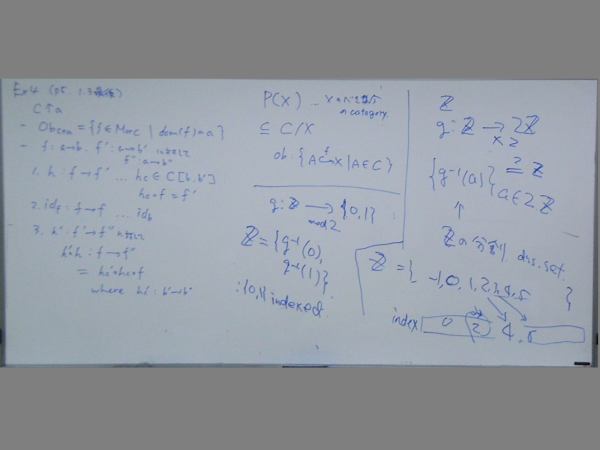 Ex4 (p5. 1.3最後)
C↑a
- Ob_{C↑a} = {f ∈ Mor_C | dom(f) = a}
- f: a→b. f': a→b' に対して
f'': a→b''
1. h: f→f' … h_C ∈ C[b, b']
h_C ∘ f = f'
2. id_f: f→f … id_b
3. h': f'→f'' に対して
h'∘h: f→f''
= h_C'∘h_C∘f
where h_C': b'→b''
P(X) …
a category.
⊆ C/X
ob: {A →^f X | A ∈ C}
g: ℤ → {0, 1}
mod 2
ℤ = {g⁻¹(0),
g⁻¹(1)}
: {0, 1} indexed
ℤ
g: ℤ → 2ℤ
×2
{g⁻¹(a)}_{a∈2ℤ} =^? ℤ
↑
ℤの分割 dis. set.
ℤ = { -1, 0, 1, 2, 3, 4, 5 }
index 0 2 4, 5